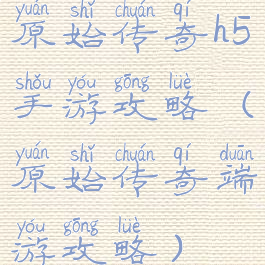 yuán shǐ chuán qí
原始传奇h5
shǒu yóu gōng lüè
手游攻略（
yuán shǐ chuán qí duān
原始传奇端
yóu gōng lüè
游攻略）